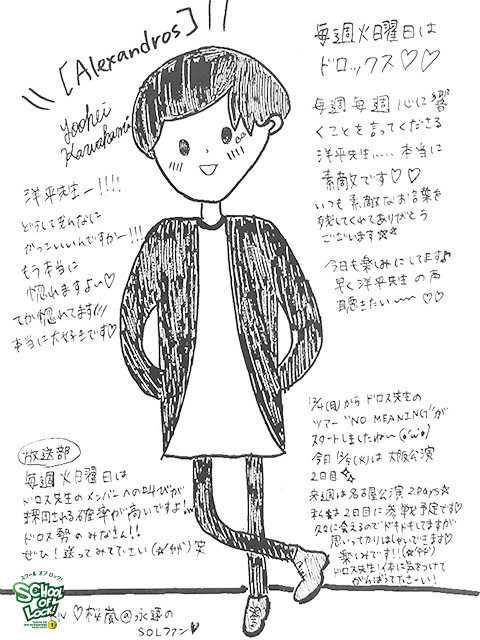 [Alexandros]
Yoohei
Kawakami
洋平先生ー!!!!
どうしてそんなに
かっこいいんですかー!!!
もう本当に
惚れますよぉ♡
てか惚れてます///
本当に大好きです♡
毎週火曜日は
ドロックス♡♡
毎週毎週心に響
くことを言ってくださる
洋平先生.....本当に
素敵です♡♡
いつも素敵なお言葉を
残してくれてありがとう
ございます☆☆
今日も楽しみにしてます♪
早く洋平先生の声
聴きたい〜〜♡♡
放送部
毎週火曜日は
ドロス先生のメンバーへの叫びが
採用される確率が高いですよ!
ドロス勢のみなさん!!
ぜひ!送ってみて下さい 笑
12/4(月)からドロス先生の
ツアー "NO MEANING"が
スタートしましたね〜(o'ω'o)
今日12/5(火)は大阪公演
2日目☆
来週は名古屋公演2Days☆
私は2日目に参戦予定です♡
久々に会えるのでドキドキしてますが
思いってかりはしゃいできます♡
楽しみです!!
ドロス先生!体に気をつけて
がんばって下さーい!
スクール オブ ロック!
SCHOOL OF LOCK!
♡桜嵐@永遠の
SOLファン♡